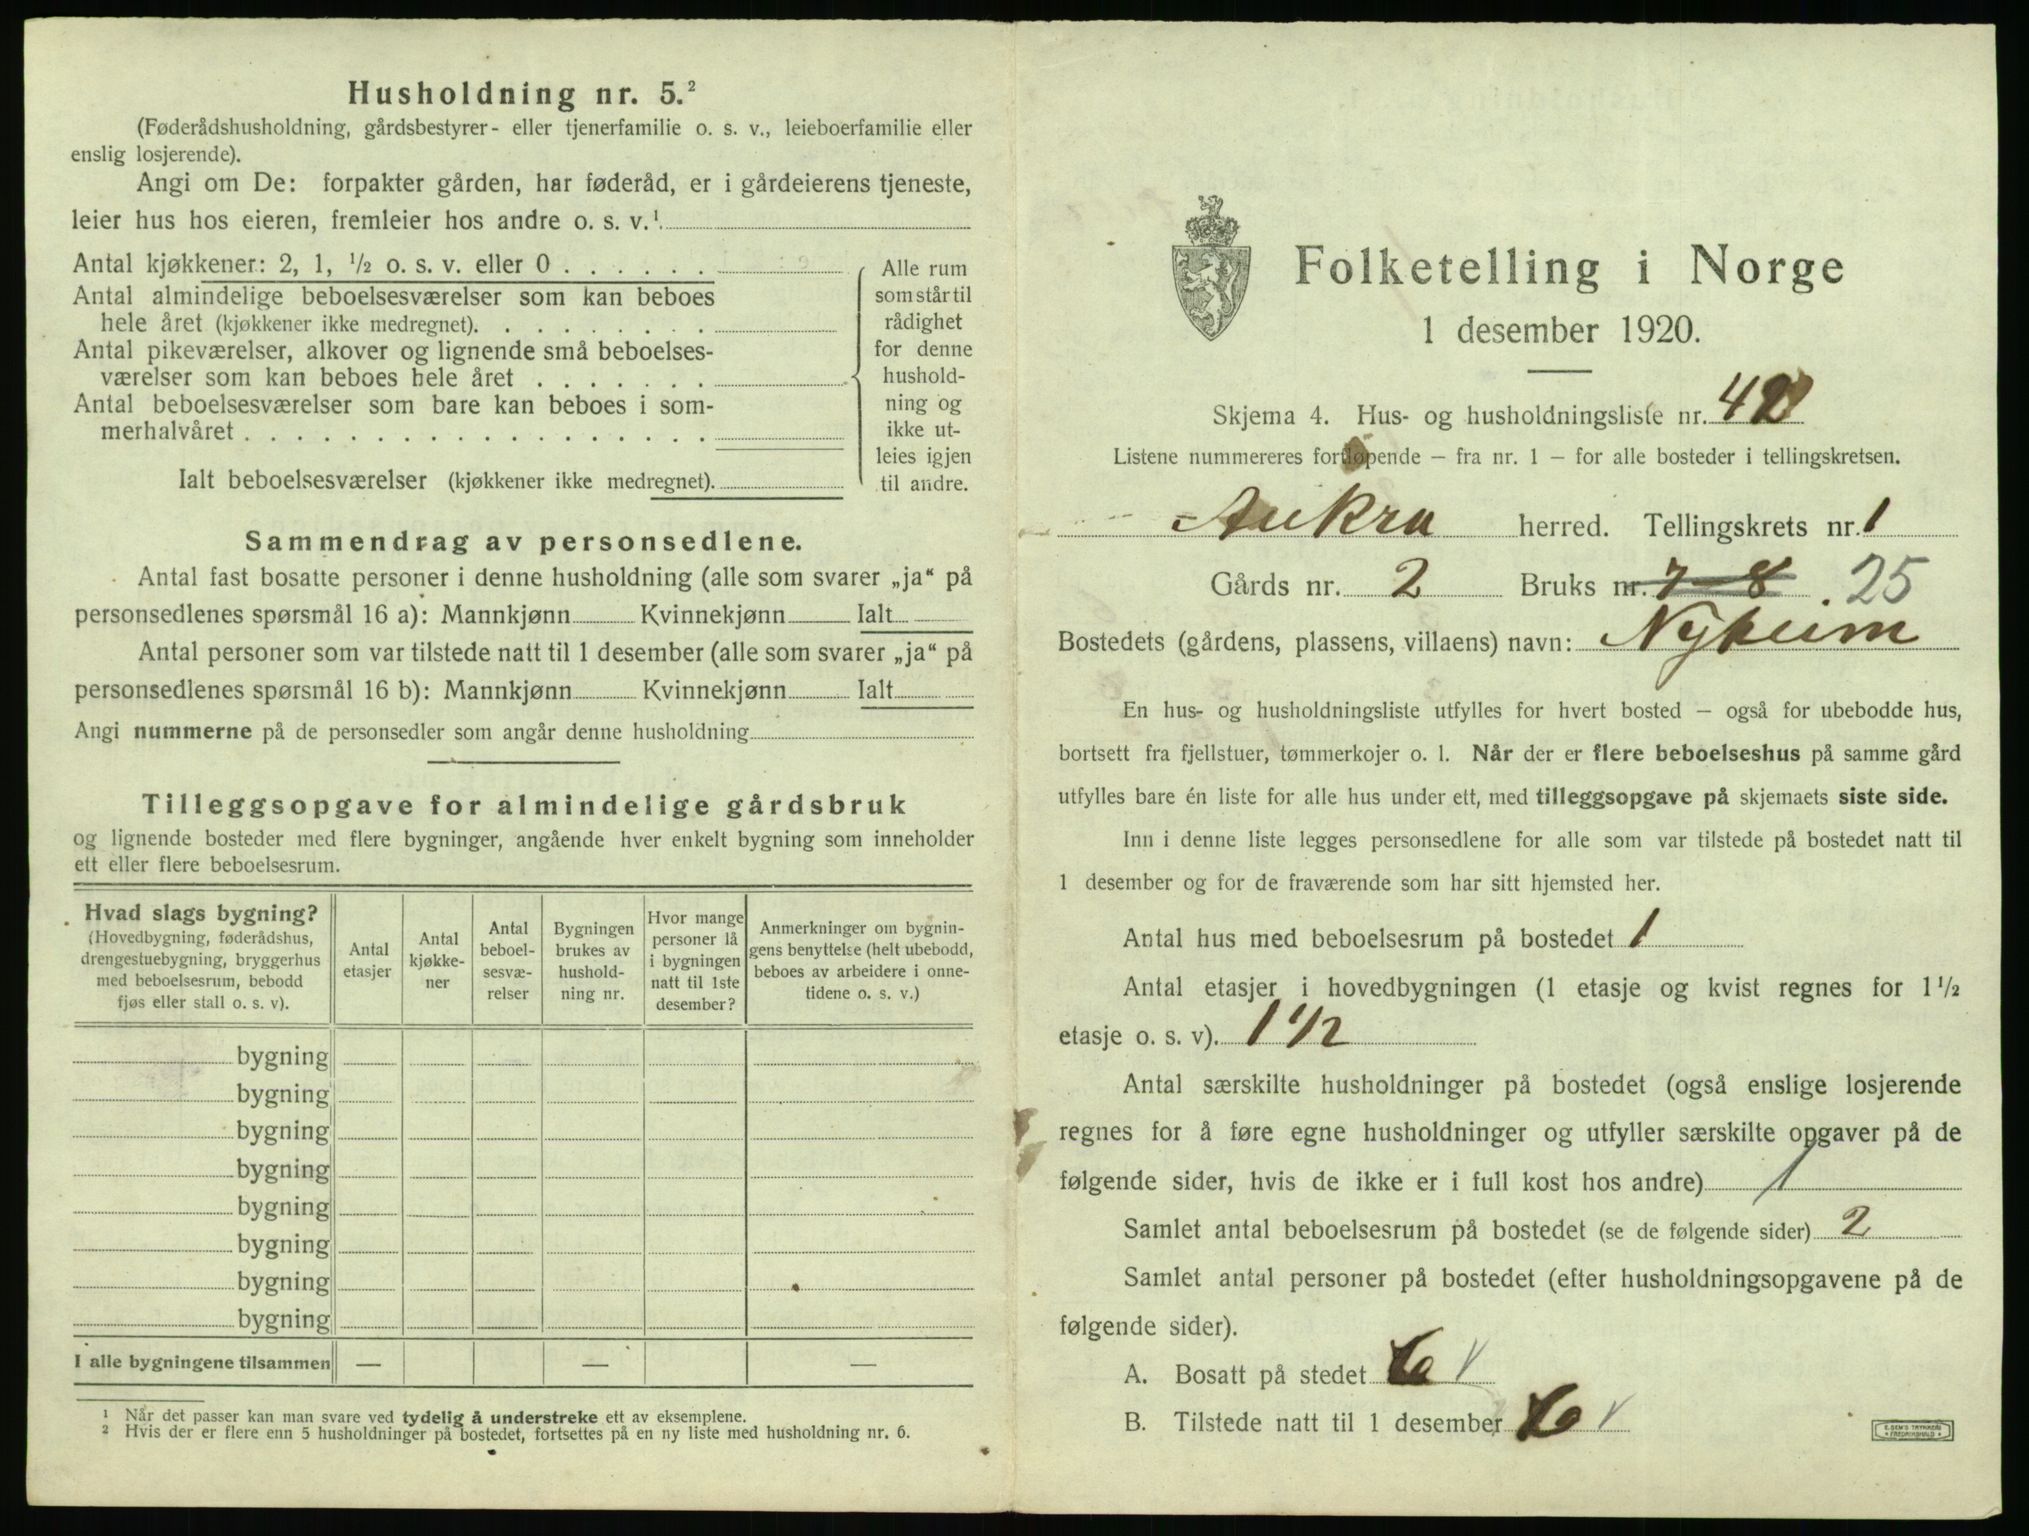 Husholdning nr. 5.²
(Føderådshusholdning, gårdsbestyrer- eller tjenerfamilie o. s. v., leieboerfamilie eller
enslig losjerende).
Angi om De: forpakter gården, har føderåd, er i gårdeierens tjeneste,
leier hus hos eieren, fremleier hos andre o. s. v.¹.
Antal kjøkkener: 2, 1, ¹/₂ o. s. v. eller 0 . . . . . .
Antal almindelige beboelsesværelser som kan beboes
hele året (kjøkkener ikke medregnet). . . . . . . . .
Antal pikeværelser, alkover og lignende små beboelses-
værelser som kan beboes hele året . . . . . . .
Antal beboelsesværelser som bare kan beboes i som-
merhalvåret . . . . . . . . . . . . . . . . . .
Ialt beboelsesværelser (kjøkkener ikke medregnet).
Alle rum
som står til
rådighet
for denne
hushold-
ning og
ikke ut-
leies igjen
til andre.
Sammendrag av personsedlene.
Antal fast bosatte personer i denne husholdning (alle som svarer „ja“ på
personsedlenes spørsmål 16 a): Mannkjønn Kvinnekjønn Ialt
Antal personer som var tilstede natt til 1 desember (alle som svarer „ja“ på
personsedlenes spørsmål 16 b): Mannkjønn Kvinnekjønn Ialt
Angi nummerne på de personsedler som angår denne husholdning
Tilleggsopgave for almindelige gårdsbruk
og lignende bosteder med flere bygninger, angående hver enkelt bygning som inneholder
ett eller flere beboelsesrum.
Hvad slags bygning?
(Hovedbygning, føderådshus,
drengestuebygning, bryggerhus
med beboelsesrum, bebodd
fjøs eller stall o. s. v).
Antal
etasjer
Antal
kjøkke-
ner
Antal
beboel-
sesvæ-
relser
Bygningen
brukes av
hushold-
ning nr.
Hvor mange
personer lå
i bygningen
natt til 1ste
desember?
Anmerkninger om bygnin-
gens benyttelse (helt ubebodd,
beboes av arbeidere i onne-
tidene o. s. v.)
bygning
bygning
bygning
bygning
bygning
bygning
bygning
bygning
I alle bygningene tilsammen — — —
¹ Når det passer kan man svare ved tydelig å understreke ett av eksemplene.
² Hvis der er flere enn 5 husholdninger på bostedet, fortsettes på en ny liste med husholdning nr. 6.
Folketelling i Norge
1 desember 1920.
Skjema 4. Hus- og husholdningsliste nr. 42
Listene nummereres fortløpende – fra nr. 1 – for alle bosteder i tellingskretsen.
Aukra herred. Tellingskrets nr. 1
Gårds nr. 2 Bruks nr. 7 - 8 . 25
Bostedets (gårdens, plassens, villaens) navn: Nyheim
En hus- og husholdningsliste utfylles for hvert bosted – også for ubebodde hus,
bortsett fra fjellstuer, tømmerkojer o. l. Når der er flere beboelseshus på samme gård
utfylles bare én liste for alle hus under ett, med tilleggsopgave på skjemaets siste side.
Inn i denne liste legges personsedlene for alle som var tilstede på bostedet natt til
1 desember og for de fraværende som har sitt hjemsted her.
Antal hus med beboelsesrum på bostedet 1
Antal etasjer i hovedbygningen (1 etasje og kvist regnes for 1 ¹/₂
etasje o. s. v). 1 1/2
Antal særskilte husholdninger på bostedet (også enslige losjerende
regnes for å føre egne husholdninger og utfyller særskilte opgaver på de
følgende sider, hvis de ikke er i full kost hos andre) 1
Samlet antal beboelsesrum på bostedet (se de følgende sider) 2
Samlet antal personer på bostedet (efter husholdningsopgavene på de
følgende sider).
A. Bosatt på stedet 6 V
B. Tilstede natt til 1 desember 6 V
E.SEM'S TRYKKERI
FREDRIKSHALD